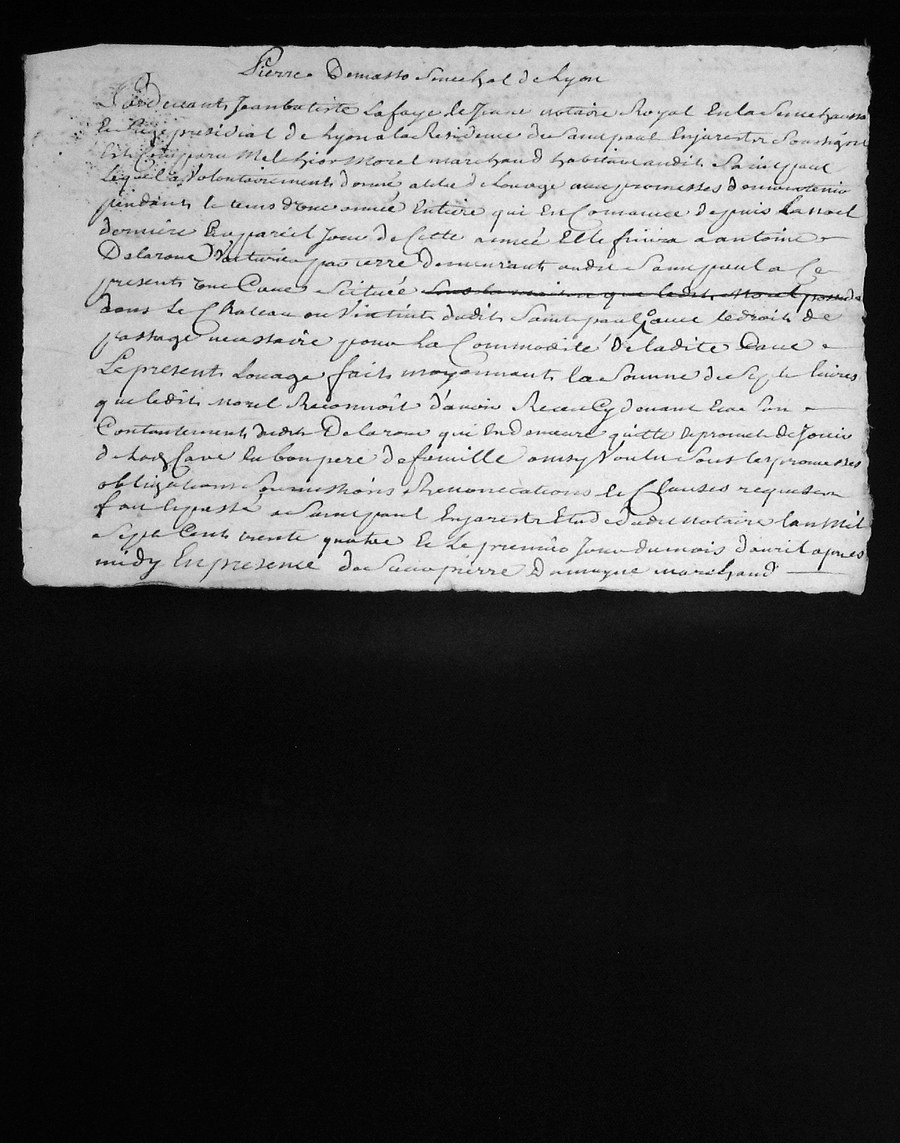 Pierre Demasso Senechal de Lyon
Pardevant Jeanbatiste Lafaye le Jeune notaire Royal En la Senechaussé
Et siege presidial de Lyon a la Residence de Saint paul Enjarest Soussigné
Est Comparu Melchior Morel marchand habitant audit Saint paul
Lequel a Volontairement donné a titre de Louage avec promesses de maintenir
pendant le tems d'une année Entiere qui En Comancé depuis La noel
derniere Et a pareil Jour de Cette année Elle finira a antoine
Delaroue Voiturier par terre demeurant audit Saint paul a Ce
present une Cave Scituée sous la maison que ledit Morel possede
dans le Chateau ou Vintint dudit Saint paul avec le droit de
passage necessaire pour La Commodité de ladite Cave
Le present Louage fait moyennant la Somme de Sept livres
que ledit Morel Reconnoît d'avoir Receu Cy devant Et a Son
Contantement dudit Delaroue qui En demeure quitte Et promet de Jouir
de Lad Cave En bon pere de famille ainsy Voulu Sous les promesses
obligations Soumissions Renonciations et Clauses requises
fait et passé a Saint paul Enjarest Etude dudit Notaire lan Mil
Sept Cent trente quatre Et le premier Jour du mois d'avril apres
midy En presence de Sieur pierre Dumayne marchand